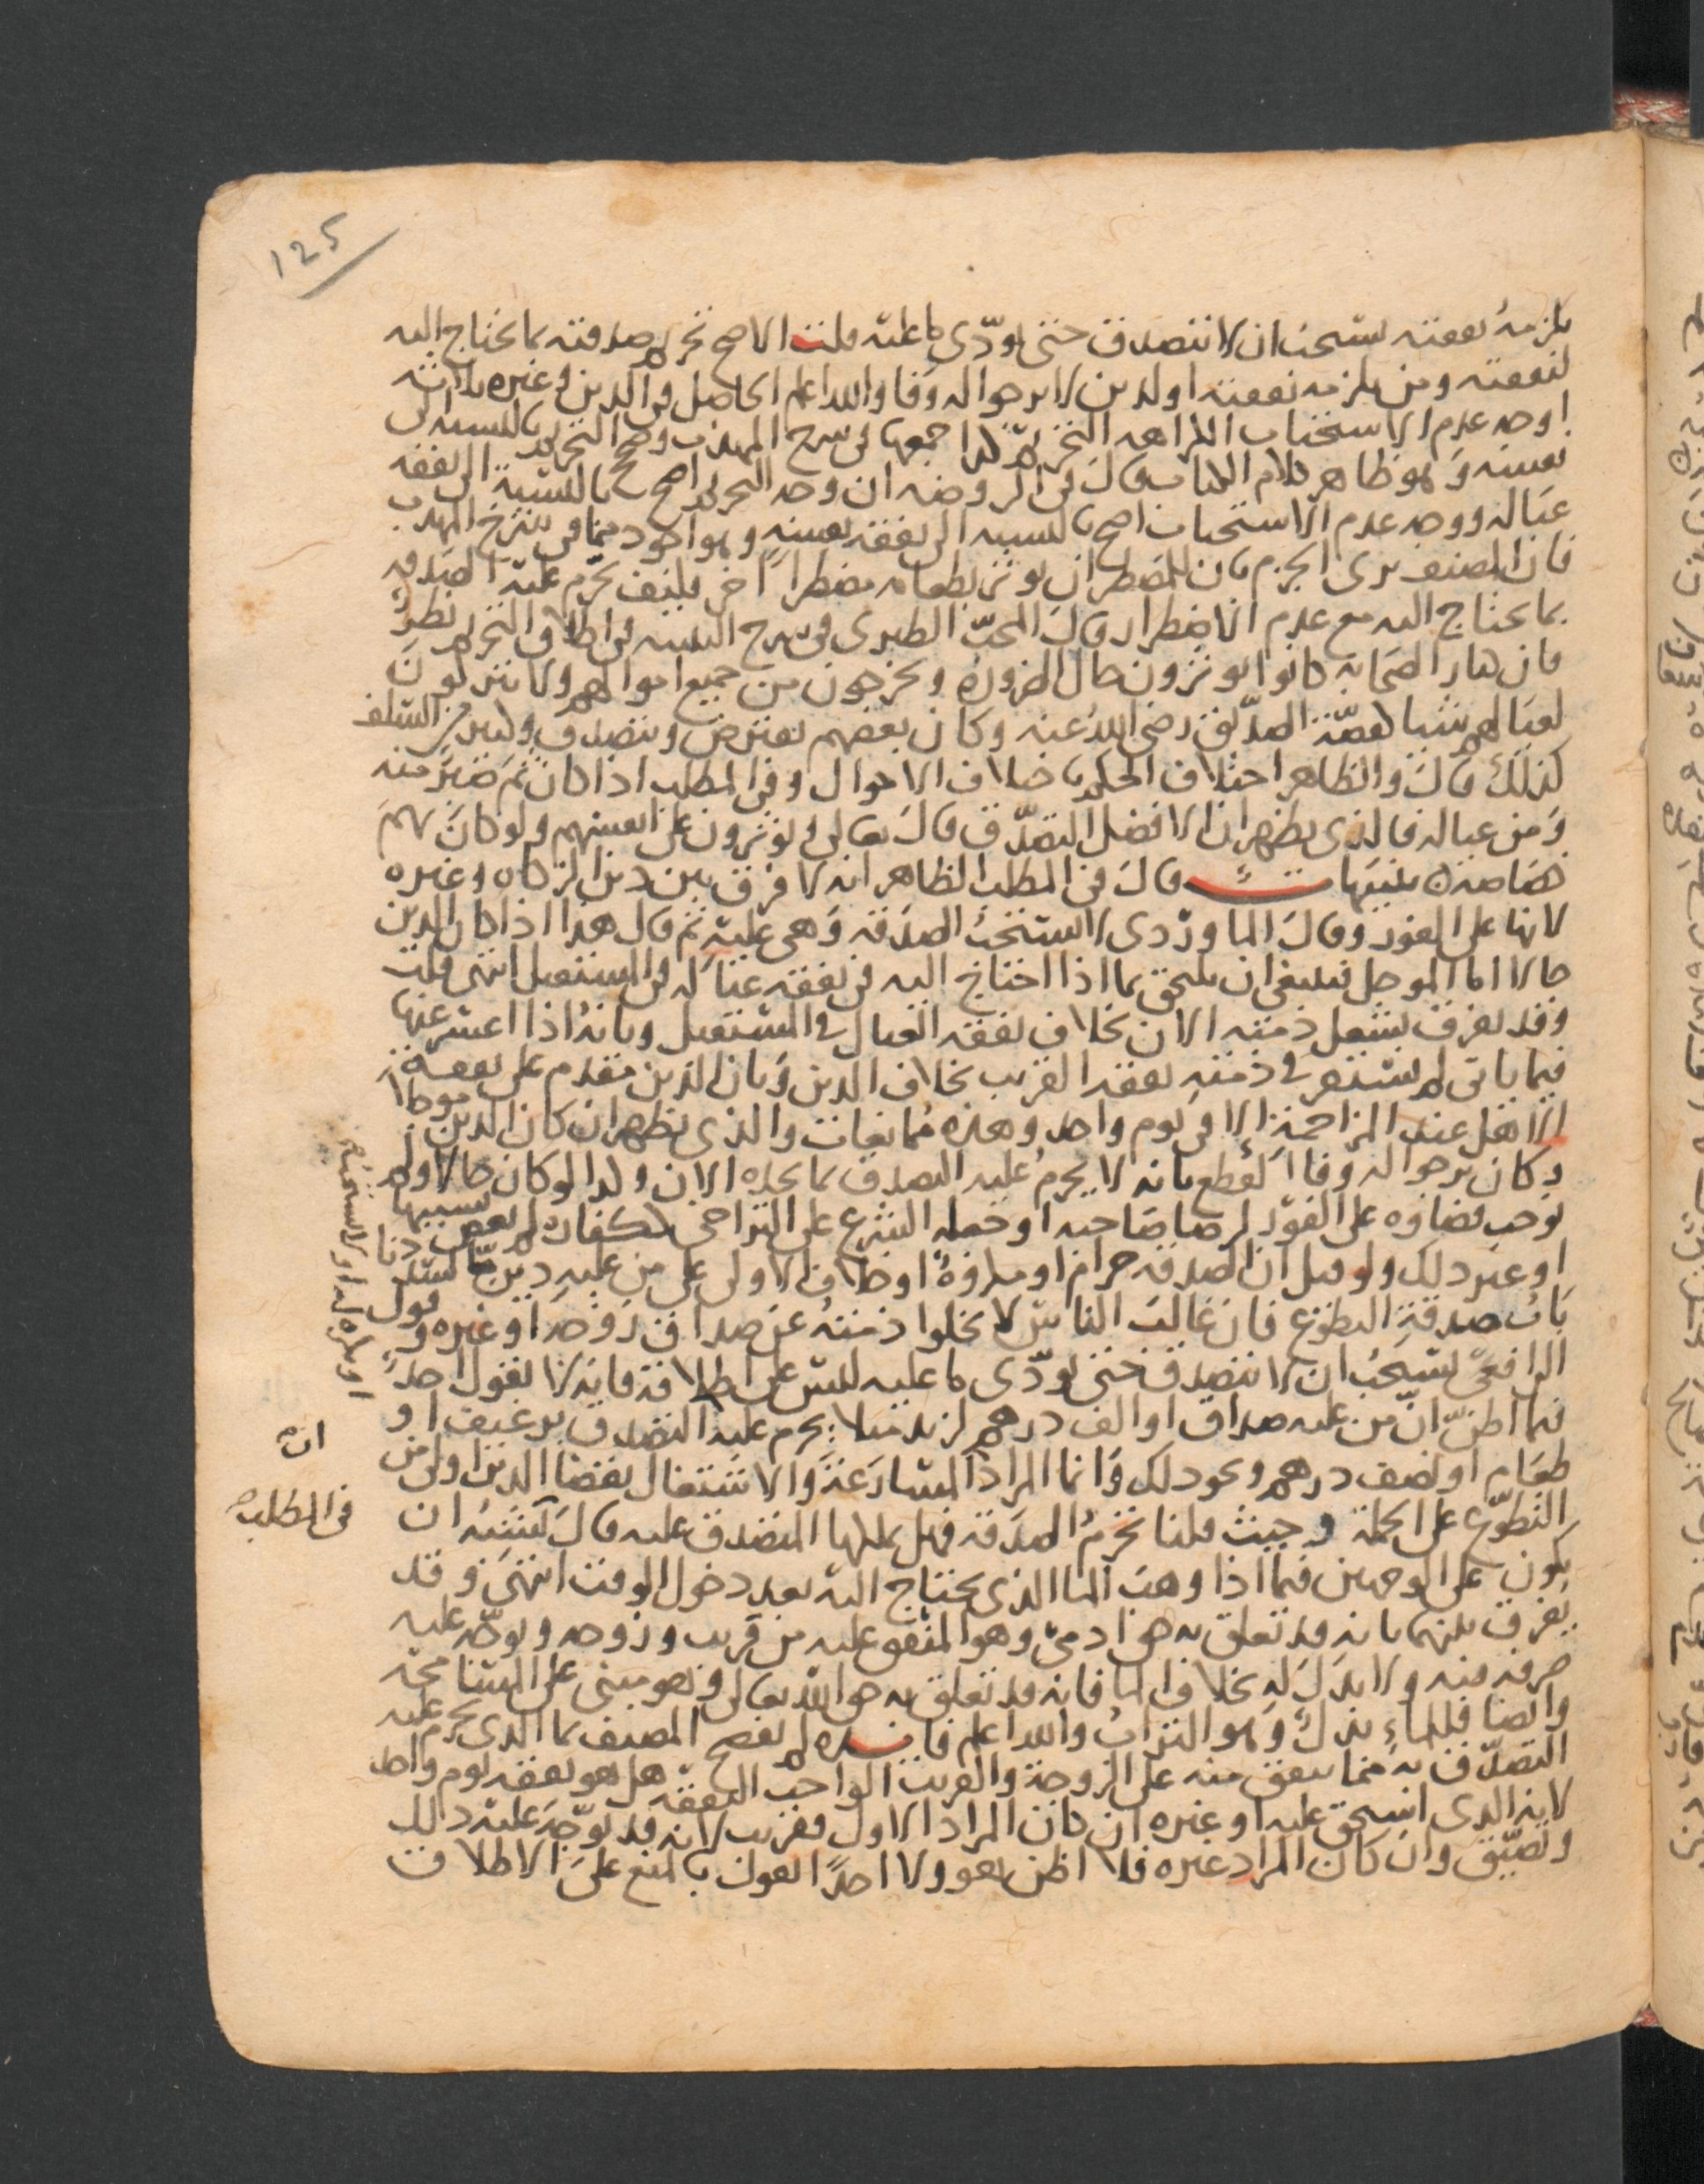 125
يلزمه نفقته يستحب ان لا يتصدق حتى يؤدّي ما عليه قلت الاصح تحريم صدقته بما يحتاج اليه
لنفقته ومن يلزمه نفقته او لدين لا يرجوا له وفا والله اعلم الحاصل في الدين وغيره ثلاثة
اوجه عدم الاستحباب الكراهه التحريم كذا جمعها في شرح المهذب وصحح التحريم بالنسبة الى
نفسه وهو ظاهر كلام الكتاب وقال في الروضه ان وجه التحريم اصح بالنسبة الى نفقة
عياله ووجه عدم الاستحباب اصح بالنسبه الى نفقة نفسه وهو اجود مما في شرح المهذب
فان المصنف يرى الجزم بان للمضطر ان يوثر بطعامه مضطراً اخر فكيف تحرم عليه الصدقه
بما يحتاج اليه مع عدم الاضطرار وقال المحبّ الطبري في شرح التنبيه في اطلاق التحريم نظرٌ
فان كبار الصحابه كانوا يوثرون حال الضرورة ويخرجون من جميع اموالهم ولا يتركون
لعيالهم شيا لقصّة الصدّيق رضي الله عنه وكان بعضهم يقترض ويتصدق وكثير من السلف
كذلك قال والظاهر اختلاف الحكم باختلاف الاحوال وفي المطلب اذا كان ثم صبر منه
ومن عياله فالذي يظهر ان الافضل التصدّق قال تعالى ويوثرون على انفسهم ولو كان بهم
خصاصه تنبيهات قال في المطلب الظاهر انه لا فرق بين دين الزكاه وغيره
لانها على الفور وقال الماوردي لا تستحبّ الصدقه وهي عليه ثم قال هذا اذا كان الدين
حالا اما الموجل فينبغي ان يلحق بما اذا احتاج اليه في نفقة عياله في المستقبل انتهى قلت
وقد يفرق بشغل ذمته الان بخلاف نفقة العيال في المستقبل وبانه اذا اعسر عنها
فيما ياتي لم يستقر في ذمته نفقه القريب بخلاف الدين وبان الدين مقدم على نفقة
الاهل عند المزاحمة الا في يوم واحد وهذه ممانعات والذي يظهر ان كان الدين موجلا
وكان يرجوا له وفا القطع بانه لا يحرم عليه التصدق بما بيده الان وكذا لو كان حالا ولم
يوجب قضاوه على الفور لرضا صاحبه او جعله الشرع على التراخي ككفاره لم يعص بسببها
او غير ذلك ولو قيل ان الصدقه حرام او مكروهة او خلاف الاولى على من عليه دين ما
بَاب صدقةِ التطوّع فان غالب الناس لا يخلوا ذمته عن صداق زوجه او غيره وقول
الرافعي يستحب ان لا يتصدق حتى يؤدّي ما عليه ليس على اطلاقه فانه لا يقول احد
فيما اظنّ انّ من عليه صداق او الف درهم لزيد مثلا يحرم عليه التصدق برغيف او
طعام او نصف درهم ونحو ذلك وانما المراد المسارعة والاشتغال بقضا الدين اولى من
التطوّع على الجملة وحيث قلنا تحرم الصدقه فهل يملكها المتصدق عليه قال يشبه ان
يكون على الوجهين فيما اذا وهب الما الذي يحتاج اليه بعد دخول الوقت انتهى وقد
يفرق بينهما بانه قد تعلق به حق ادميّ وهو المنفق عليه من قريب وزوجه وتوجّه عليه
صرفه منه ولا بدل له بخلاف الما فانه قد تعلق به حق الله تعالى وهو مبني على المسامحة
وايضا فللماء بدل وهو التراب والله اعلم فايده لم يفصح المصنف بما الذي يحرم عليه
التصدّق به مما ينفق منه على الزوجة والقريب الواجب النفقة هل هو نفقه يوم واحد
لانه الذي استحق عليه او غيره ان كان المراد الاول فقريب لانه قد توجّه عليه ذلك
وتضيّق وان كان المراد غيره فلا اظن هو ولا احداً يقول بالمنع على الاطلاق
في المطلب